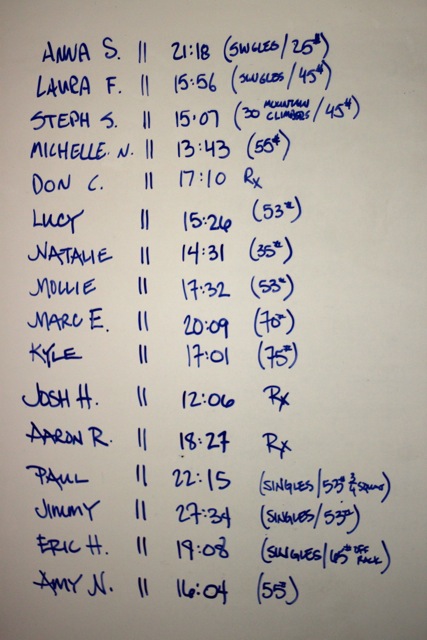 ANNA S. || 21:18 (SINGLES/25#)
LAURA F. || 15:56 (SINGLES/45#)
STEPH S. || 15:07 (30 MOUNTAIN CLIMBERS/45#)
MICHELLE N. || 13:43 (55#)
DON C. || 17:10 Rx
LUCY || 15:26 (53#)
NATALIE || 14:31 (35#)
MOLLIE || 17:32 (53#)
MARC E. || 20:09 (70#)
KYLE || 17:01 (75#)
JOSH H. || 12:06 Rx
AARON R. || 18:27 Rx
PAUL || 22:15 (SINGLES/53# 3/4 SQUAT)
JIMMY || 27:34 (SINGLES/53#)
ERIC H. || 19:08 (SINGLES/65# OFF RACK)
AMY N. || 16:04 (55#)